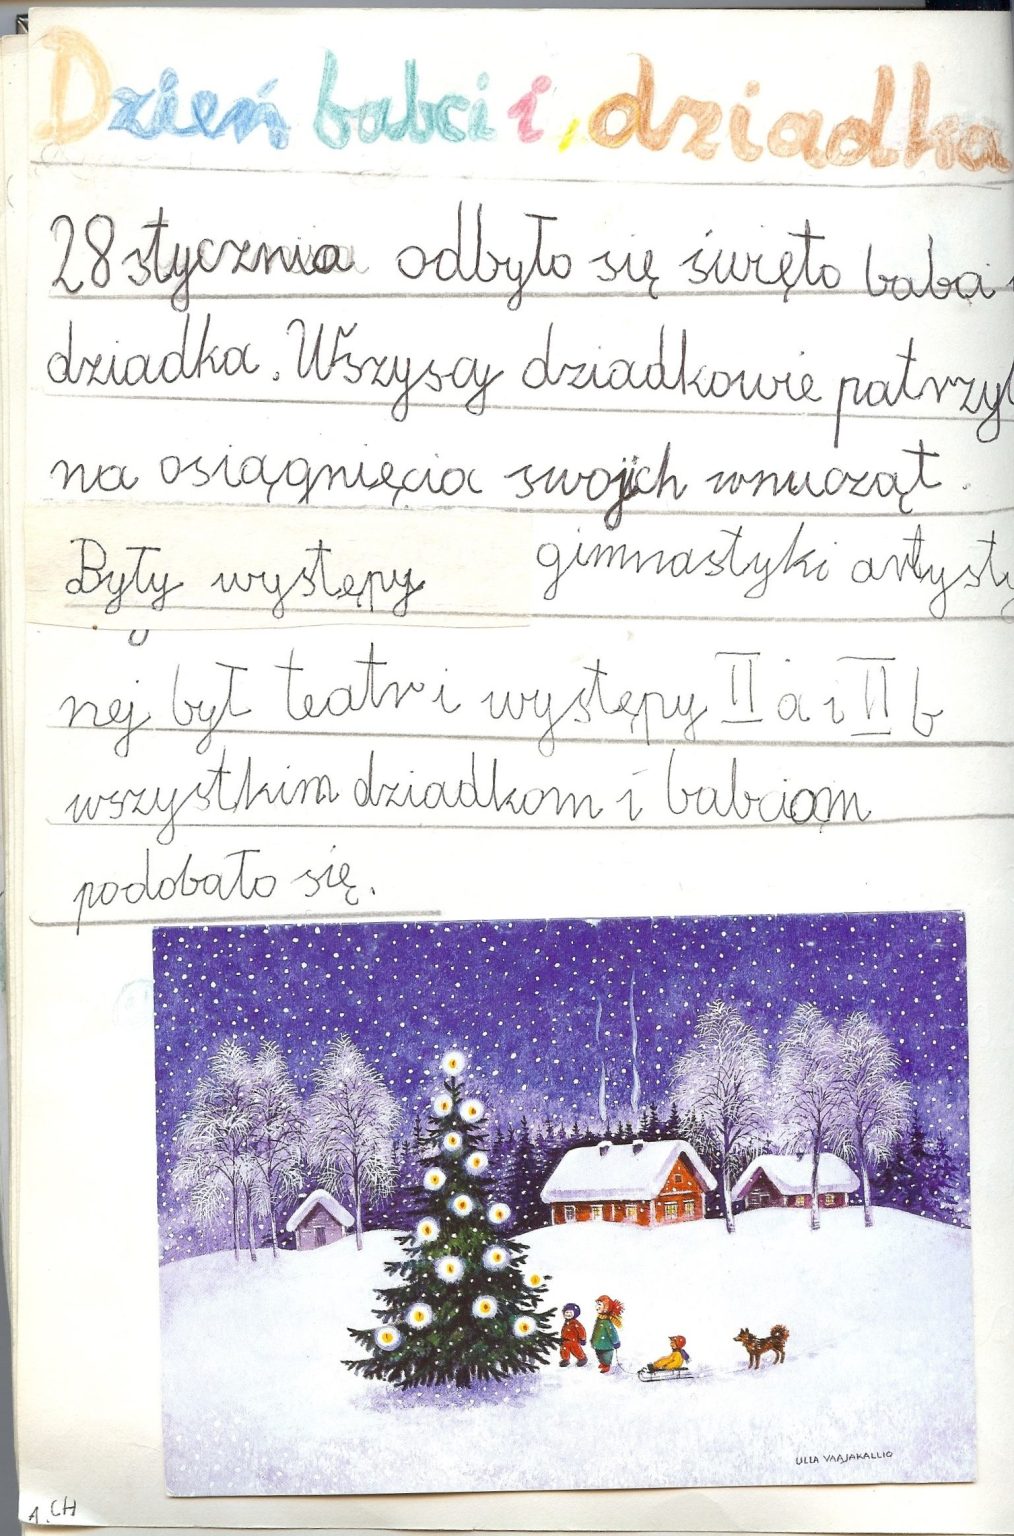 Dzień babci i, dziadka
28 stycznia odbyło się święto babci i
dziadka. Wszyscy dziadkowie patrzyl
na osiągnięcia swojich wnucząt.
Były występy gimnastyki artysty
nej był teatr i występy II a i II b
wszystkim dziadkom i babciom
podobało się.
ULLA VAAJAKALLIO
A.CH